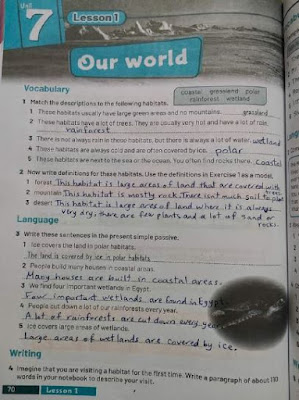 Unit
7
Lesson 1
Our world
Vocabulary
coastal grassland polar
rainforest wetland
1 Match the descriptions to the following habitats.
1 These habitats usually have large green areas and no mountains. grassland
2 These habitats have a lot of trees. They are usually very hot and have a lot of rain.
rainforest
3 There is not always rain in these habitats, but there is always a lot of water. wetland
4 These habitats are always cold and are often covered by ice. polar
5 These habitats are next to the sea or the ocean. You often find rocks there. coastal
2 Now write definitions for these habitats. Use the definitions in Exercise 1 as a model.
1 forest This habitat is large areas of land that are covered with
2 mountain This habitat is mostly rock. There isn't much soil to
3 desert This habitat is large area of land where it is always
very dry, there are few plants and a lot of sand or
rocks.
Language
3 Write these sentences in the present simple passive.
1 Ice covers the land in polar habitats.
The land is covered by ice in polar habitats
2 People build many houses in coastal areas.
Many houses are built in coastal areas.
3 We find four important wetlands in Egypt.
Four important wetlands are found in Egypt.
4 People cut down a lot of our rainforests every year.
A lot of rainforests are cut down every year
5 Ice covers large areas of wetlands.
Large areas of wetlands are covered by ice.
Writing
4 Imagine that you are visiting a habitat for the first time. Write a paragraph of about 110
words in your notebook to describe your visit.
70 Lesson 1